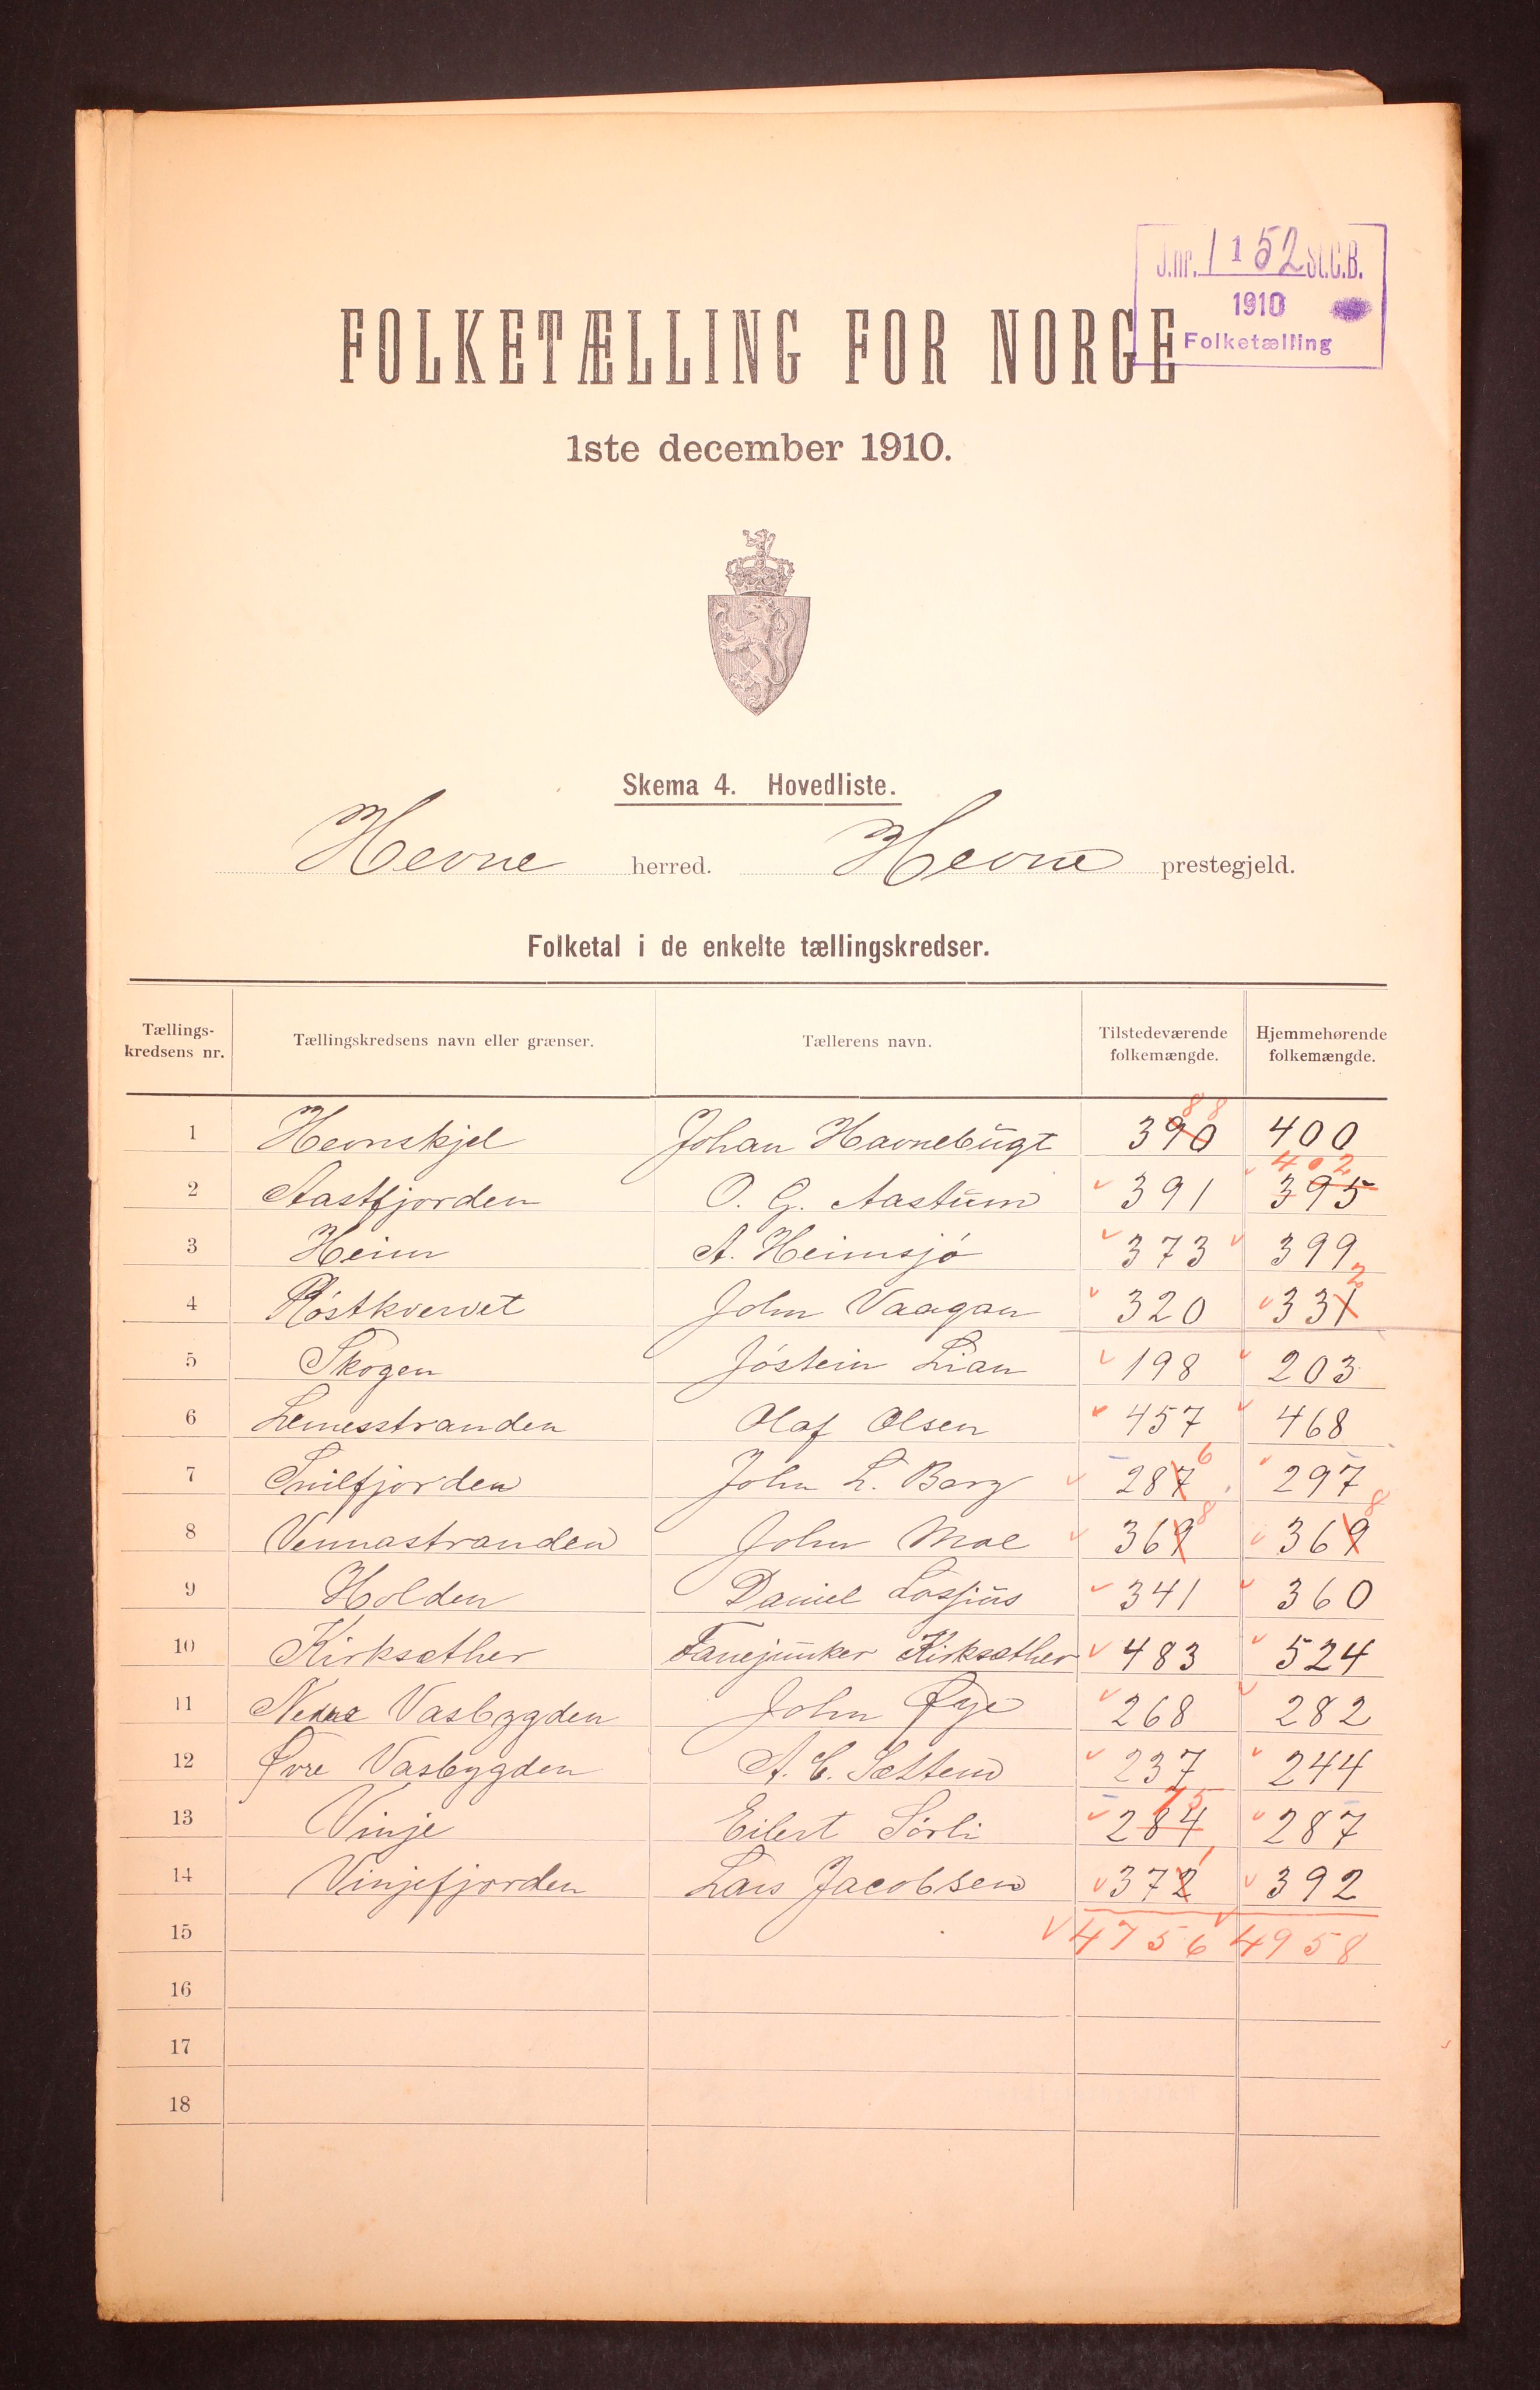 J.nr. 1152 St.C.B.
1910
Folketælling
FOLKETÆLLING FOR NORGE
1ste december 1910.
Skema 4. Hovedliste.
Hevne herred. Hevne prestegjeld.
Folketal i de enkelte tællingskredser.
Tællings-kredsens nr. Tællingskredsens navn eller grænser. Tællerens navn. Tilstedeværende folkemængde. Hjemmehørende folkemængde.
88
1 Hevnskjel Johan Havnebugt 390 400
402
2 Aastfjorden O. G. Aastum 391 395
3 Heim A. Heimsjø 373 399
2
4 Røstkvervet John Vaagan 320 331
5 Skogen Jøstein Lian 198 203
6 Lenesstranden Olaf Olsen 457 468
6
7 Snilfjorden John L. Berg 287 297
8 8
8 Vennastranden John Moe 369 369
9 Holden Daniel Losjius 341 360
10 Kirksæther Fanejunker Kirksæther 483 524
11 Nedre Vasbygden John Øye 268 282
12 Øvre Vasbygden A. C. Sættem 237 244
75
13 Vinje Eilert Sørli 284 287
1
14 Vinjefjorden Lars Jacobsen 372 392
15 4756 4958
16
17
18